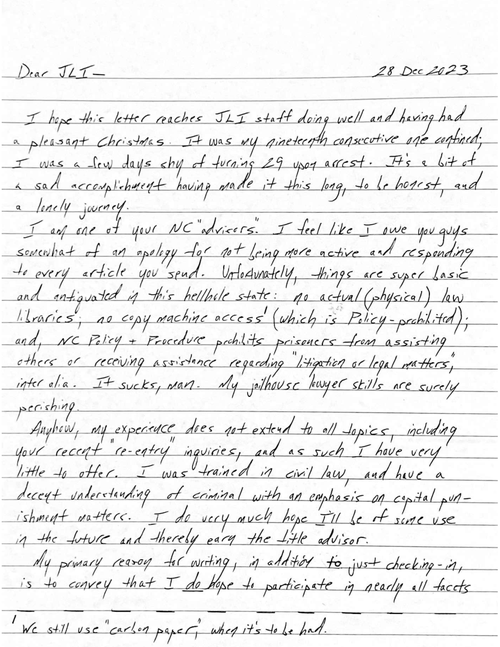 Dear JLI— 28 Dec 2023
I hope this letter reaches JLI staff doing well and having had
a pleasant Christmas. It was my nineteenth consecutive one confined;
I was a few days shy of turning 29 upon arrest. It's a bit of
a sad accomplishment having made it this long, to be honest, and
a lonely journey.
I am one of your NC "advisors". I feel like I owe you guys
somewhat of an apology for not being more active and responding
to every article you send. Unfortunately, things are super basic
and antiquated in this hellhole state: no actual (physical) law
libraries; no copy machine access¹ (which is Policy-prohibited);
and, NC Policy + Procedure prohibits prisoners from assisting
others or receiving assistance regarding "litigation or legal matters",
inter alia. It sucks, man. My jailhouse lawyer skills are surely
perishing.
Anyhow, my experience does not extend to all topics, including
your recent "re-entry" inquiries, and as such I have very
little to offer. I was trained in civil law, and have a
decent understanding of criminal with an emphasis on capital pun-
ishment matters. I do very much hope I'll be of some use
in the future and thereby earn the title advisor.
My primary reason for writing, in addition to just checking-in,
is to convey that I do hope to participate in nearly all facets
¹ We still use "carbon paper", when it's to be had.